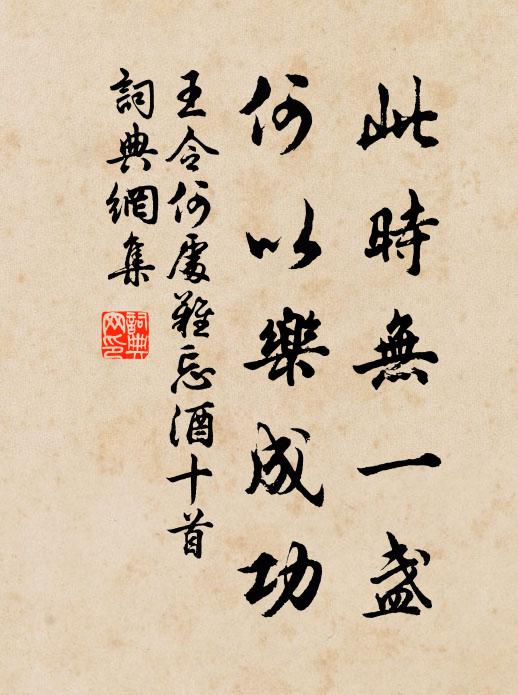 此時無一盞
何以樂成功
王令何處難忘酒十首
詞典網集
詞典网印